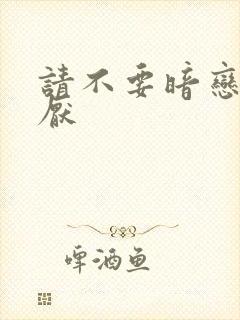 請不要暗戀
厭
啤酒鱼